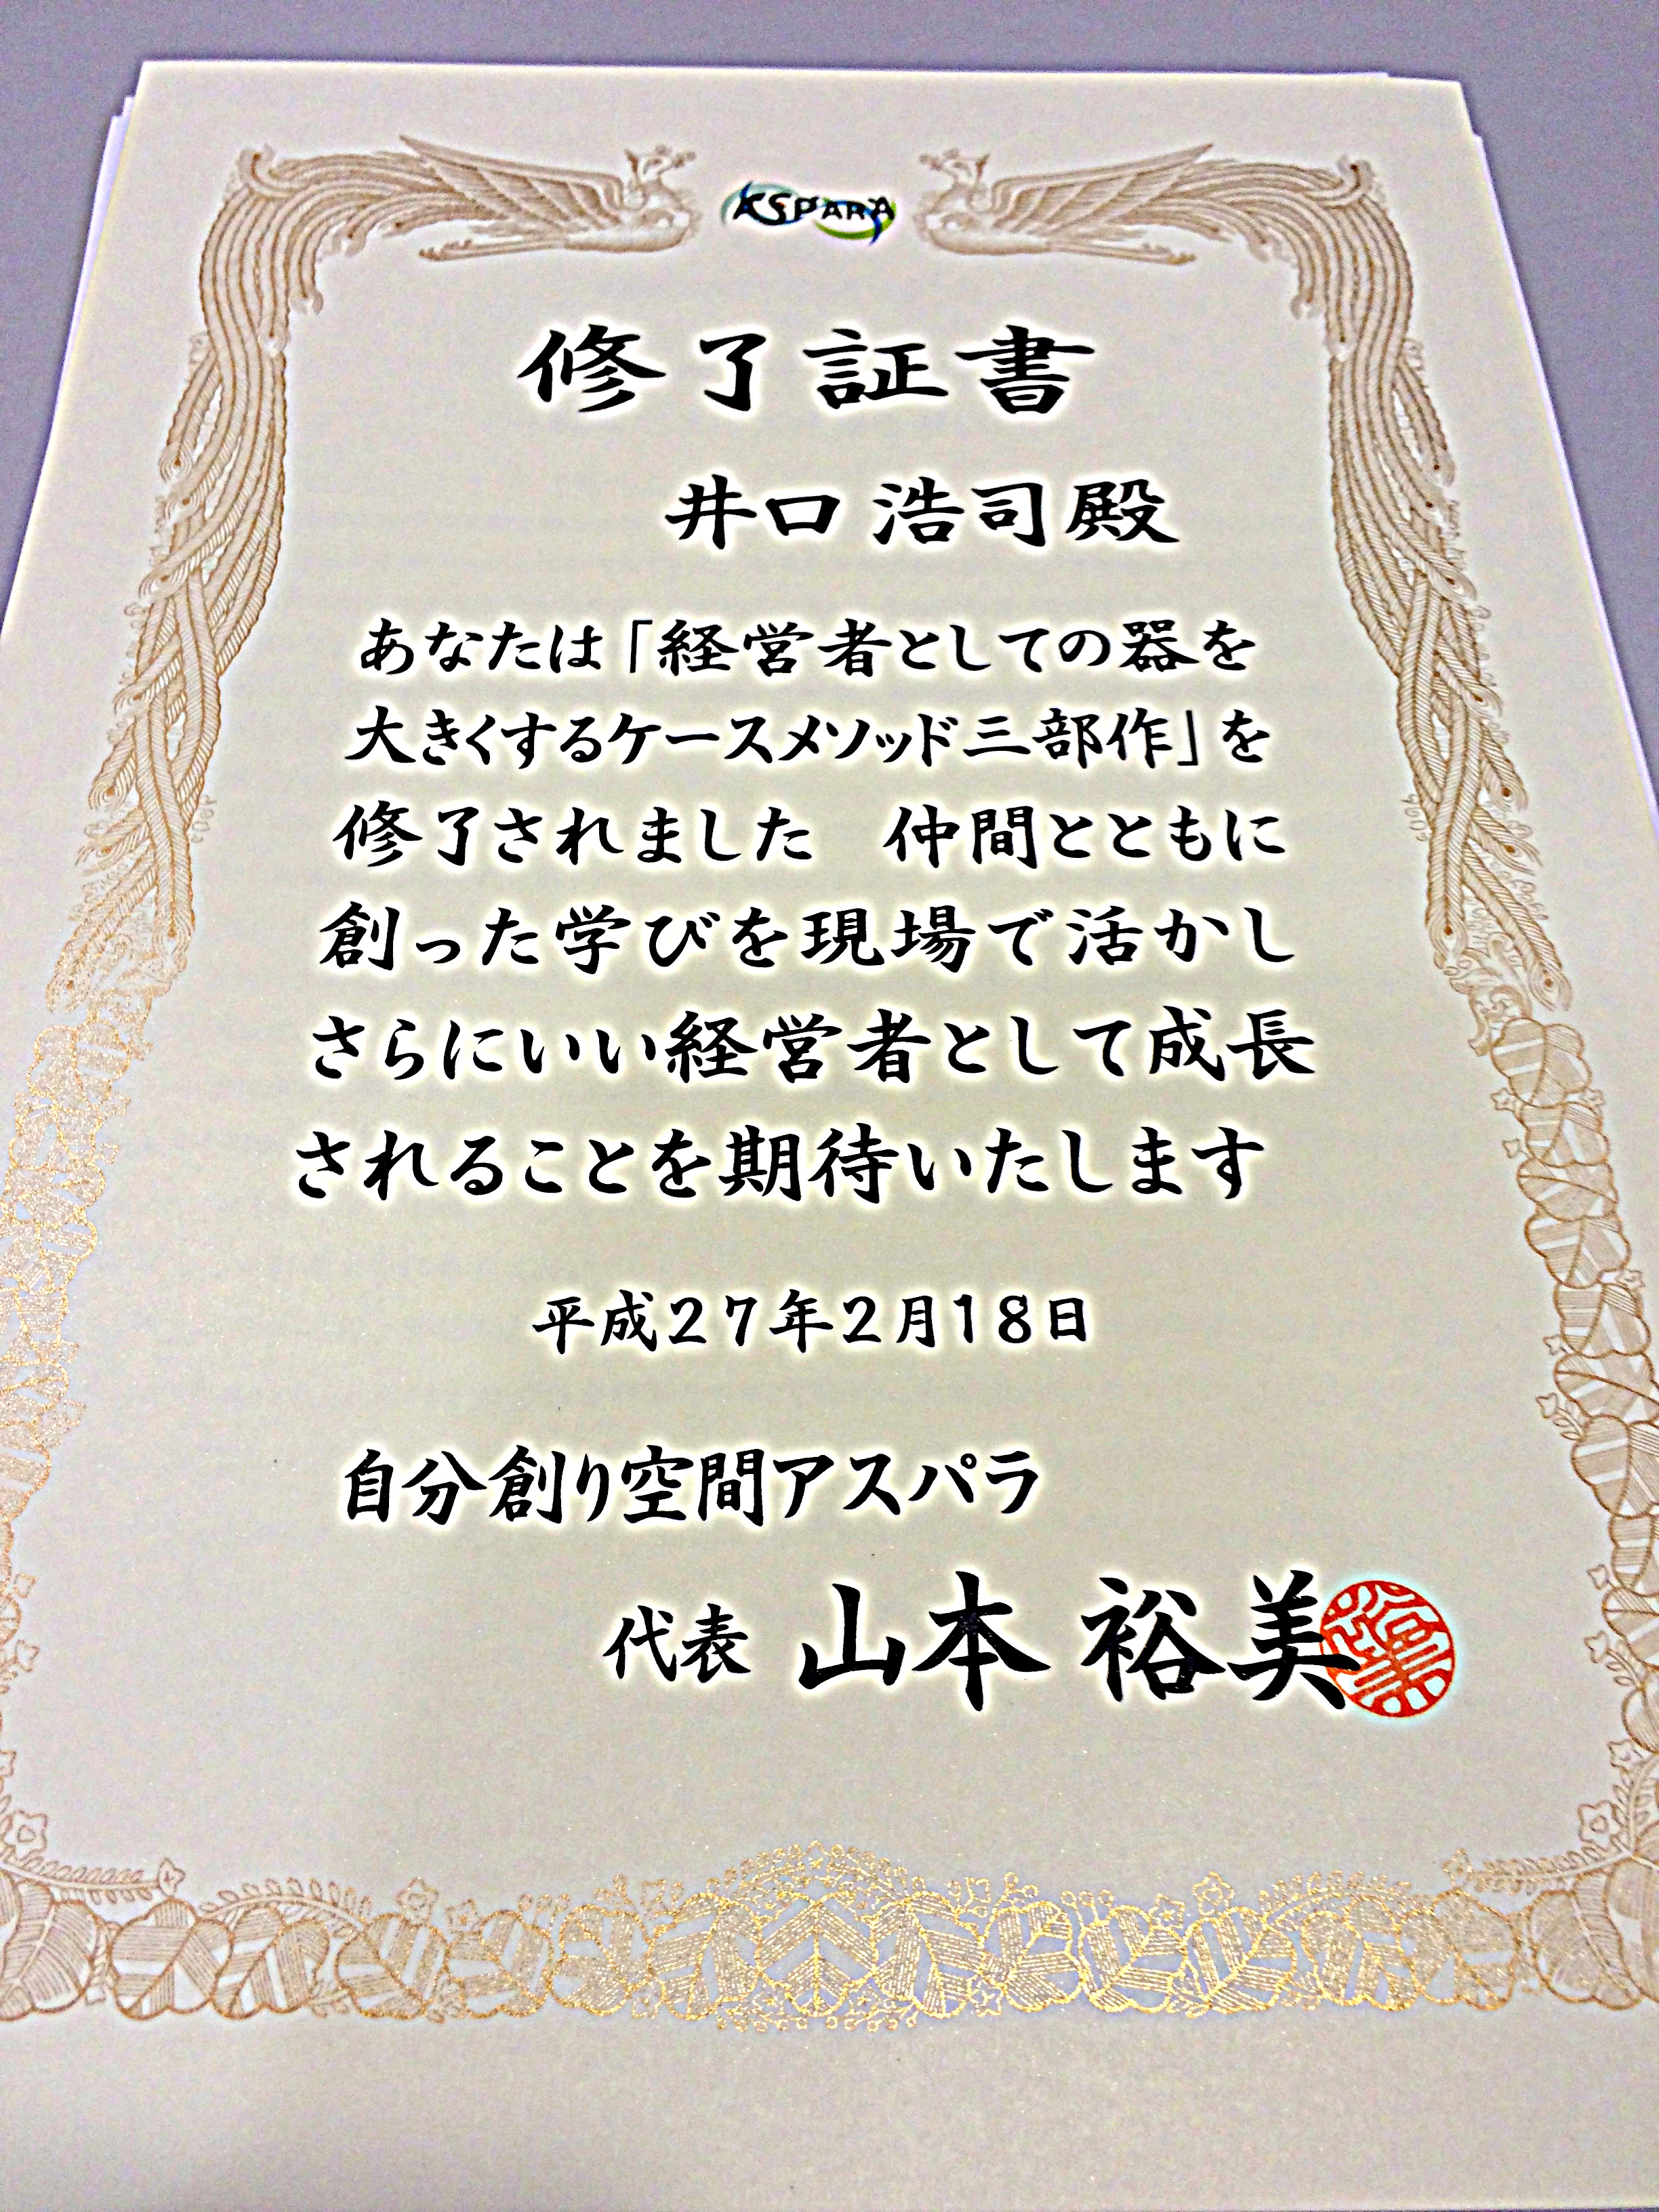 ASPARA
修了証書
井口 浩司殿
あなたは「経営者としての器を
大きくするケースメソッド三部作」を
修了されました　仲間とともに
創った学びを現場で活かし
さらにいい経営者として成長
されることを期待いたします
平成27年2月18日
自分創り空間アスパラ
代表 山本 裕美